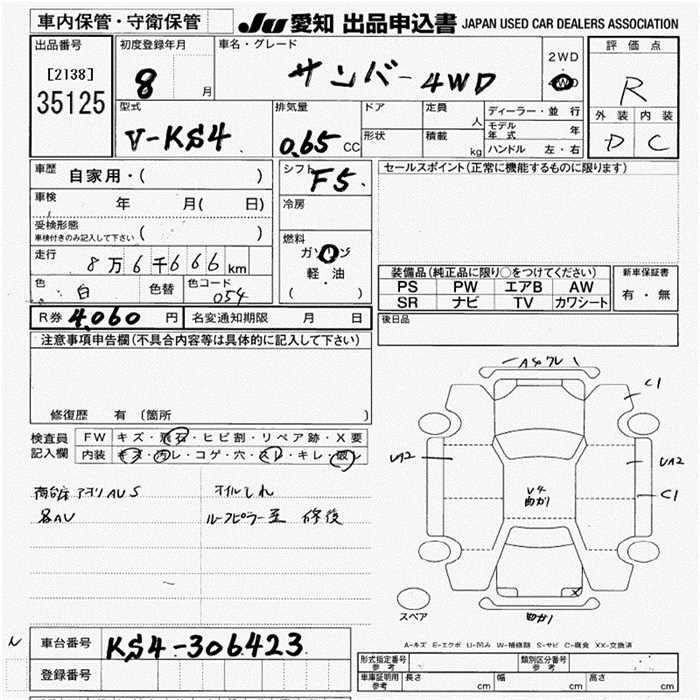 車内保管・守衛保管 JU 愛知 出品申込書 JAPAN USED CAR DEALERS ASSOCIATION
出品番号 初度登録年月 車名・グレード 2WD 評価点
[2138] 8 月 サンバー 4WD 4WD R
35125 型式 排気量 ドア 定員 人 ディーラー・並行 外装 内装
V-KS4 0.65 CC 形状 積載 kg モデル年式 年 D C
ハンドル 左・右
車歴 自家用・( ) シフト F5 セールスポイント(正常に機能するものに限ります)
車検 年 月( 日) 冷房
受検形態 ( )
車検付きのみ記入して下さい
燃料
走行 8万6千666km ガソリン
軽・油
( )
装備品(純正品に限り○をつけてください) 新車保証書
色 白 色替 色コード 054 PS PW エアB AW 有・無
SR ナビ TV カワシート
R券 4,060 円 名変通知期限 月 日 後日品
注意事項申告欄(不具合内容等は具体的に記入して下さい)
修復歴 有(箇所 )
検査員記入欄 FW キズ・飛石・ヒビ割・リペア跡・X要
内装 キズ・汚レ・コゲ・穴・スレ・キレ・破レ
C1
UA2 UA2
C1
オイルもれ
各AU ルーフピラー歪 修復
スペア
A-キズ E-エクボ U-凹み W-補修跡 S-サビ C-腐食 XX-交換済
車台番号 KS4-306423
登録番号
形式指定番号 参考 類別区分番号 参考
車庫証明用 参考 長さ cm 幅 cm 高さ cm